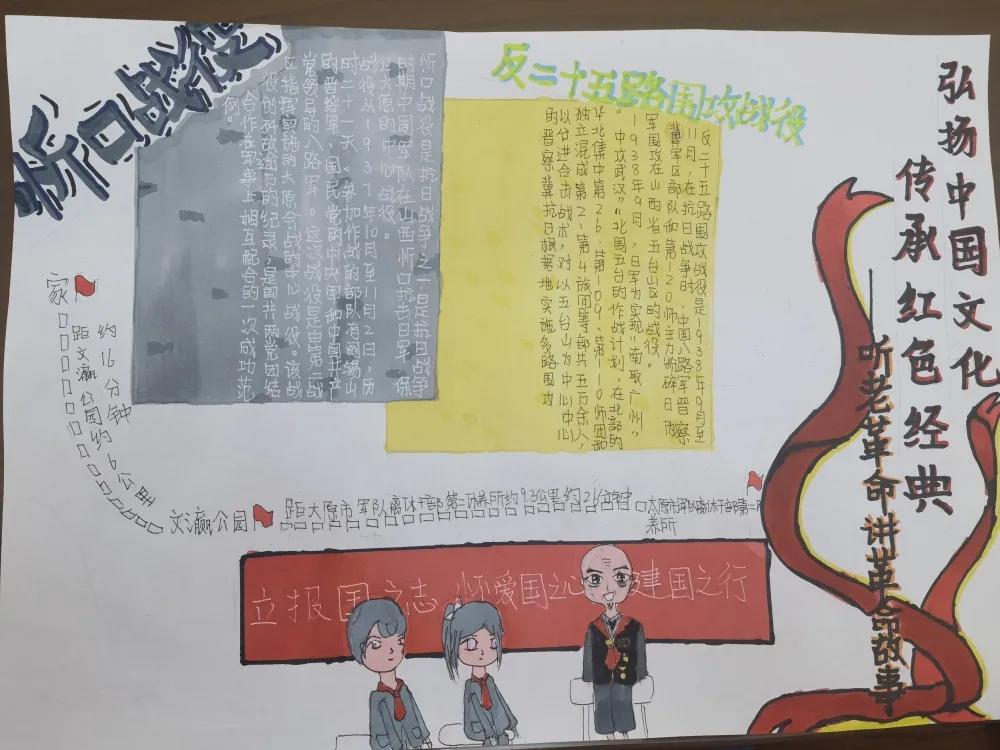 弘扬中国文化
传承红色经典
——听老革命讲革命故事
反二十五路围攻战役
反二十五路围攻战役是1938年9月至
11月,在抗日战争时,中国八路军晋察
冀军区部队和第120师主力粉碎日伪
军围攻在山西省五台山区的战役。
1938年9月,日军为实现“南取广州”
“中攻武汉”“北围五台的作战计划,在北部的
华北集中第26、第109、第110师团和
独立混成第2-第4旅团等部共五万余人,
以分进合击战术,对以五台山为中心中心
的晋察冀抗日根据地实施多路围攻
忻口战役
忻口战役是抗日战争之一日是抗日战争
时期中国军队在山西忻口抗击日军、保
卫太原的中心战役。
战役从1937年10月至11月2日,历
时二十一天。参加作战的部队有阎锡山
的晋绥军、国民党的中央军和中国共产
党领导的八路军。这次战役是由第二战
区指挥实施的太原会战的中心战役。该战
役创歼敌逾万的纪录,是国共两党团结
合作在军事上相互配合的一次成功范
例。
家
距文瀛公园约6公里
约16分钟
文瀛公园
距太原市军队离休干部第二休养所约9.3公里约21分钟
太原市军队离休干部第二休
养所
立报国之志 怀爱国之心 建国之行